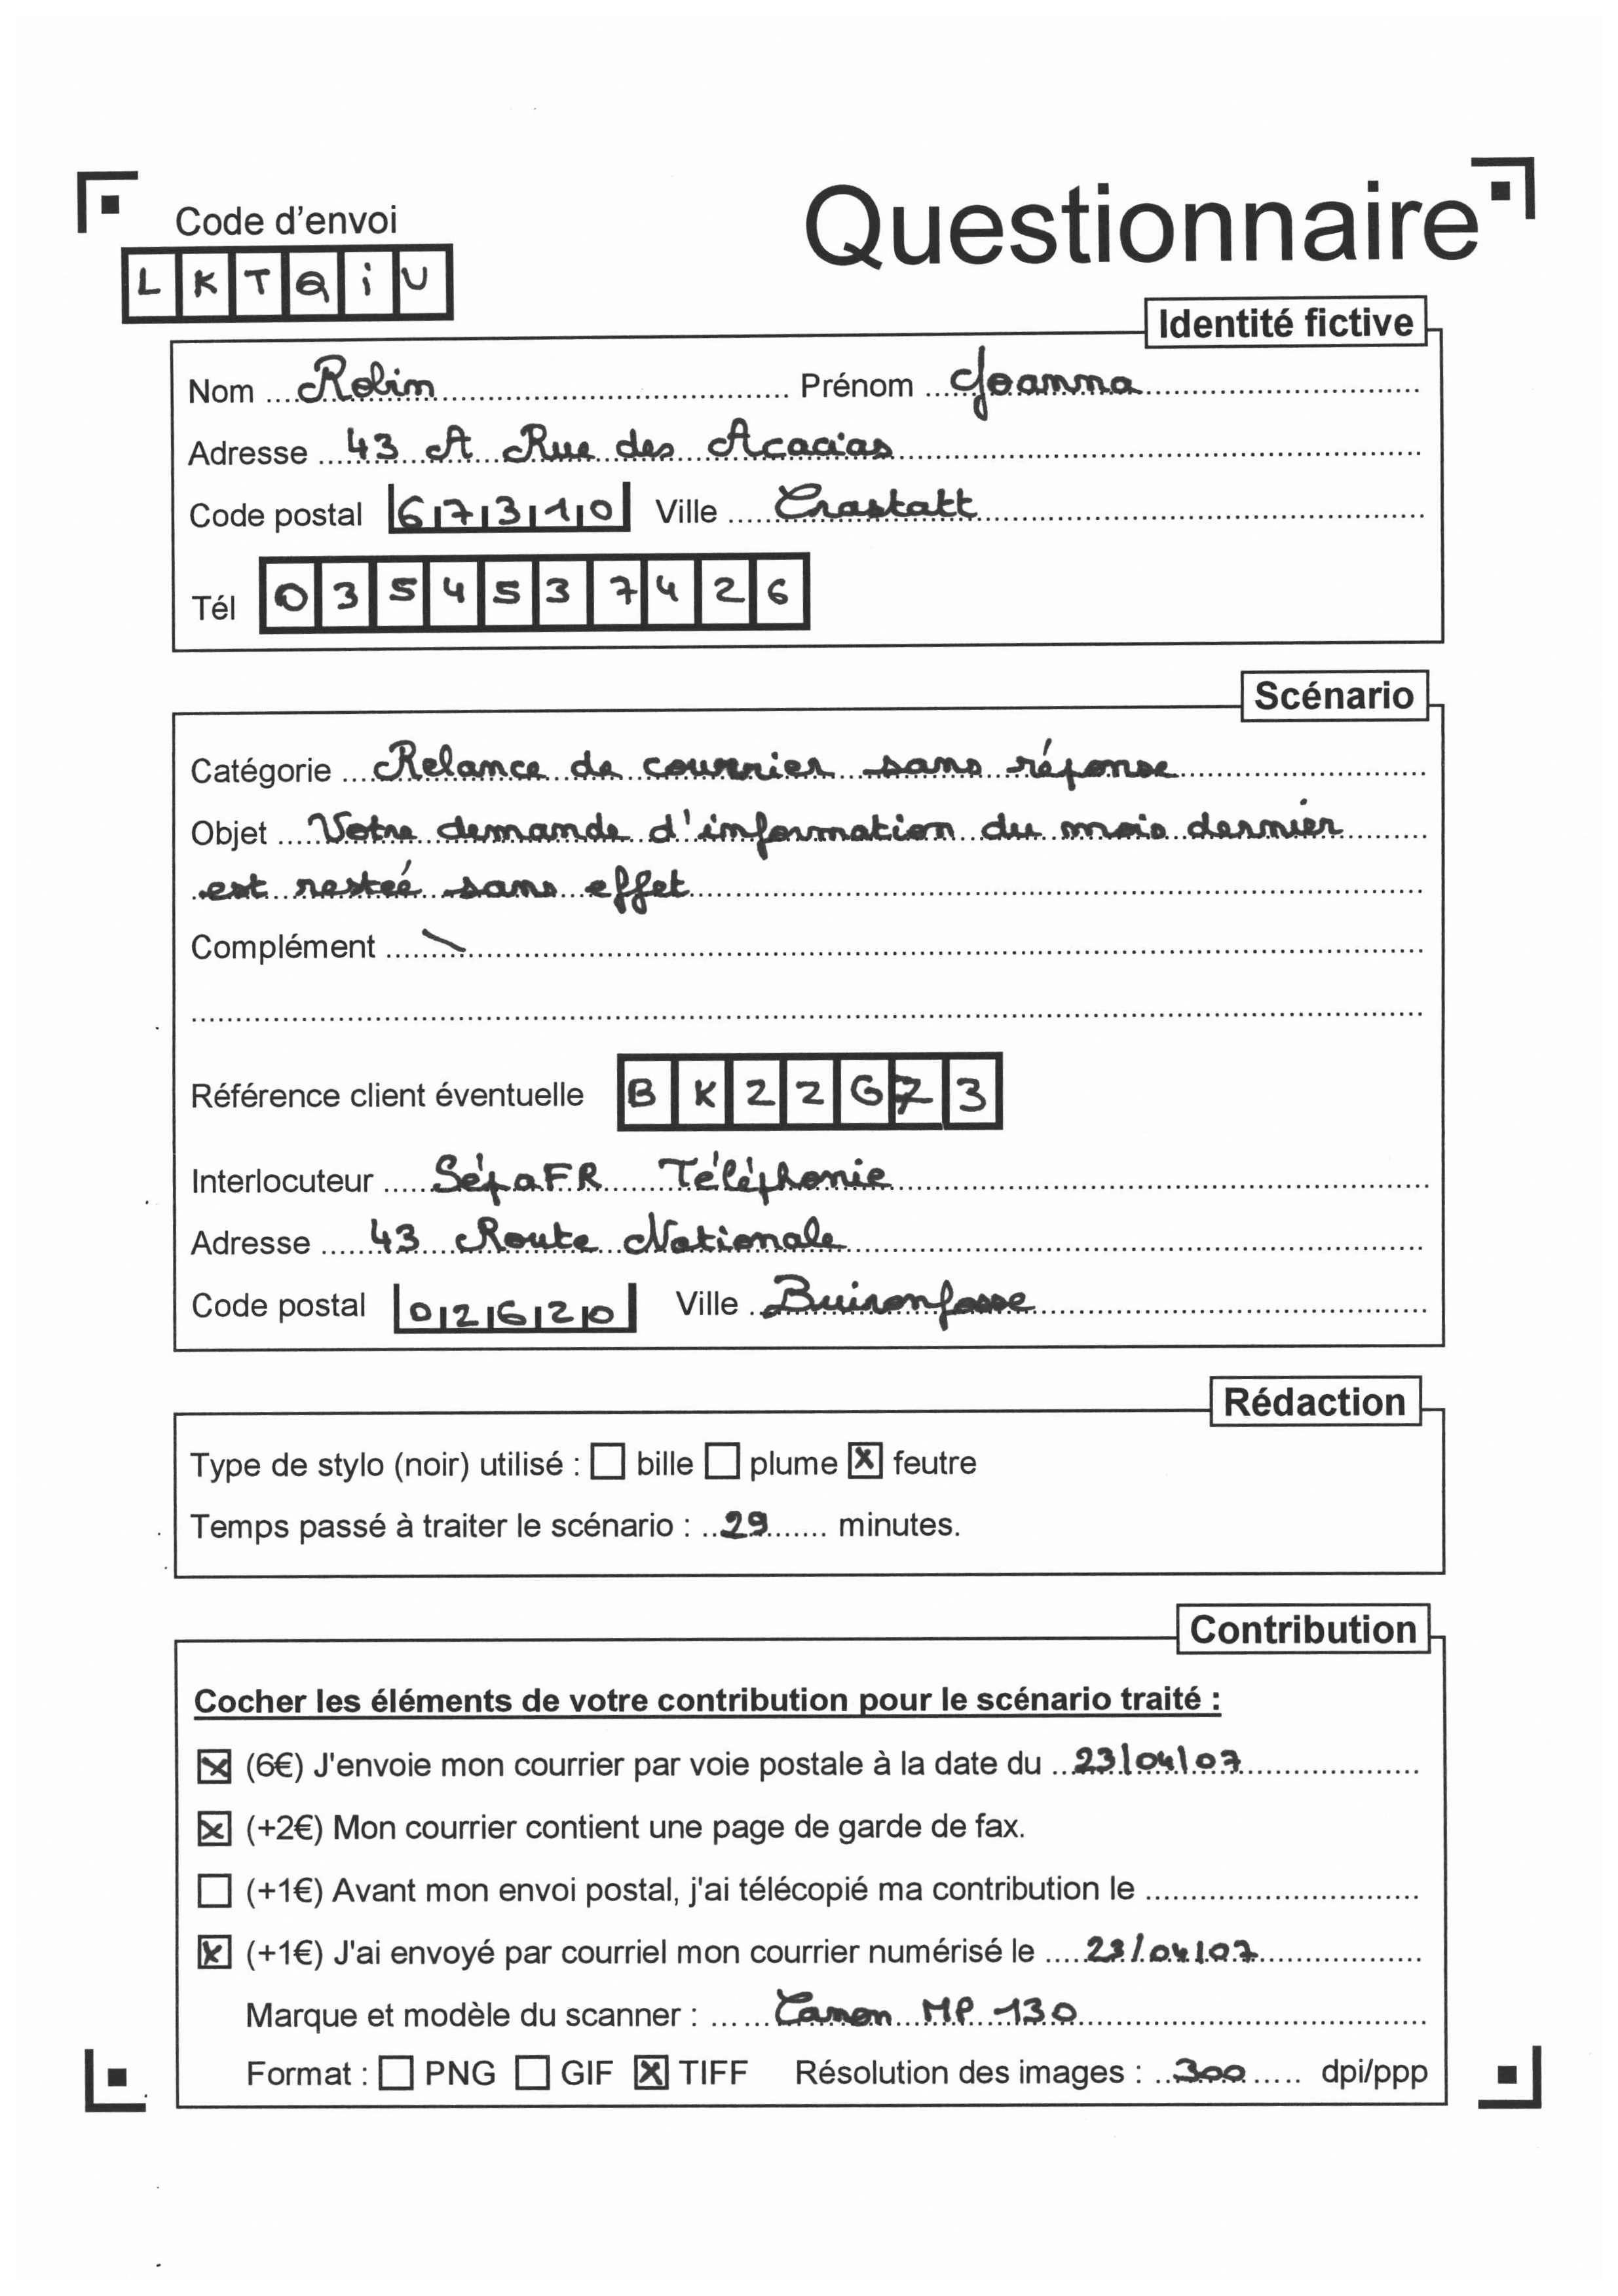 Code d'envoi
Questionnaire
L K T Q i U
Identité fictive
Nom Robin Prénom Joanna
Adresse 43 A Rue des Acacias
Code postal 67310 Ville Crastatt
Tél 0354537426
Scénario
Catégorie Relance de courrier sans réponse
Objet Votre demande d'information du mois dernier
est resteé sans effet
Complément
Référence client éventuelle BK22GZ3
Interlocuteur SépaFR Téléphonie
Adresse 43 Route Nationale
Code postal 02620 Ville Buironfosse
Rédaction
Type de stylo (noir) utilisé : ☐ bille ☐ plume ☒ feutre
Temps passé à traiter le scénario : 29 minutes.
Contribution
Cocher les éléments de votre contribution pour le scénario traité :
☒ (6€) J'envoie mon courrier par voie postale à la date du 23/04/07
☒ (+2€) Mon courrier contient une page de garde de fax.
☐ (+1€) Avant mon envoi postal, j'ai télécopié ma contribution le
☒ (+1€) J'ai envoyé par courriel mon courrier numérisé le 23/04/07
Marque et modèle du scanner : Canon MP 130
Format : ☐ PNG ☐ GIF ☒ TIFF Résolution des images : 300 dpi/ppp